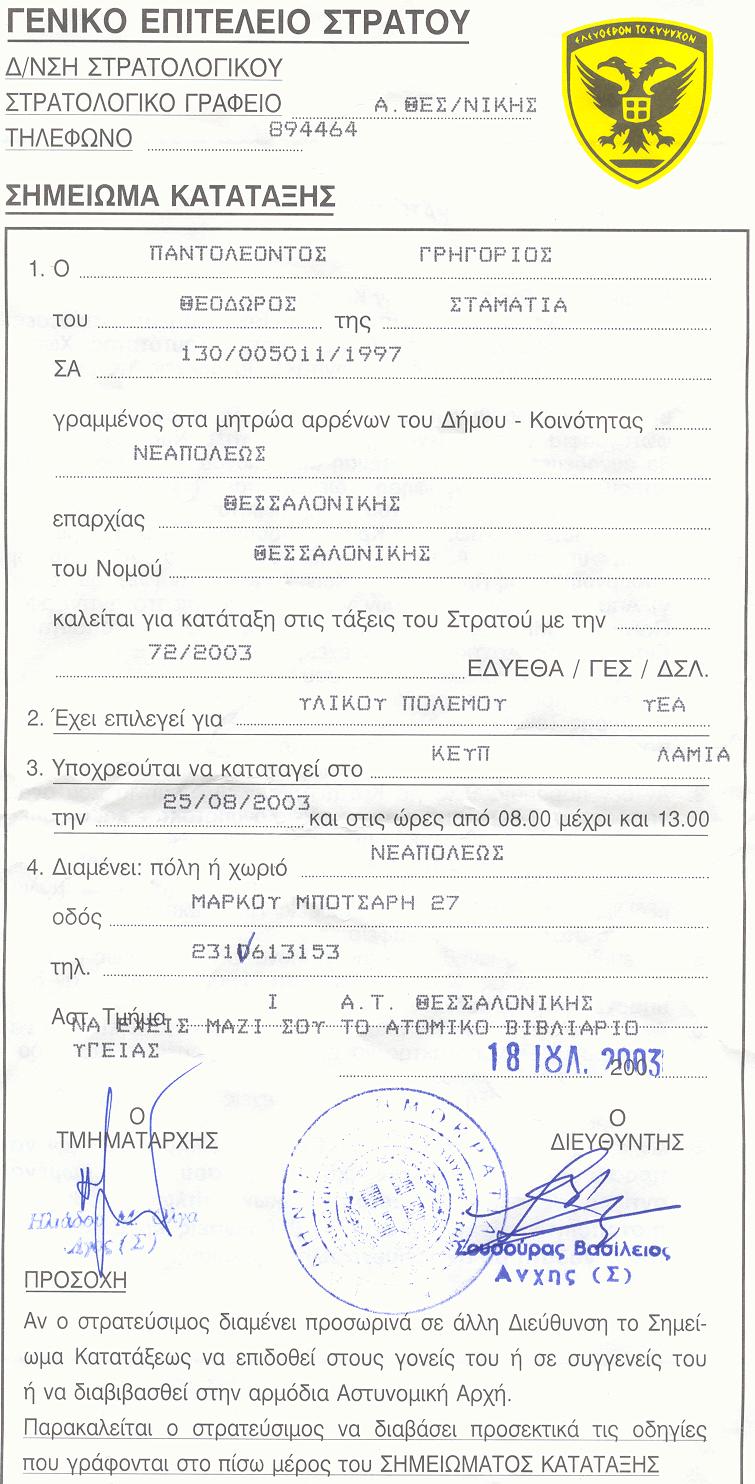 ΓΕΝΙΚΟ ΕΠΙΤΕΛΕΙΟ ΣΤΡΑΤΟΥ
ΕΛΕΥΘΕΡΟΝ ΤΟ ΕΥΨΥΧΟΝ
Δ/ΝΣΗ ΣΤΡΑΤΟΛΟΓΙΚΟΥ
ΣΤΡΑΤΟΛΟΓΙΚΟ ΓΡΑΦΕΙΟ Α.ΘΕΣ/ΝΙΚΗΣ
ΤΗΛΕΦΩΝΟ 894464
ΣΗΜΕΙΩΜΑ ΚΑΤΑΤΑΞΗΣ
1. Ο ΠΑΝΤΟΛΕΟΝΤΟΣ ΓΡΗΓΟΡΙΟΣ
του ΘΕΟΔΩΡΟΣ της ΣΤΑΜΑΤΙΑ
ΣΑ 130/005011/1997
γραμμένος στα μητρώα αρρένων του Δήμου - Κοινότητας
ΝΕΑΠΟΛΕΩΣ
επαρχίας ΘΕΣΣΑΛΟΝΙΚΗΣ
του Νομού ΘΕΣΣΑΛΟΝΙΚΗΣ
καλείται για κατάταξη στις τάξεις του Στρατού με την
72/2003 ΕΔΥΕΘΑ / ΓΕΣ / ΔΣΛ.
2. Έχει επιλεγεί για ΥΛΙΚΟΥ ΠΟΛΕΜΟΥ ΥΕΑ
3. Υποχρεούται να καταταγεί στο ΚΕΥΠ ΛΑΜΙΑ
την 25/08/2003 και στις ώρες από 08.00 μέχρι και 13.00
4. Διαμένει: πόλη ή χωριό ΝΕΑΠΟΛΕΩΣ
οδός ΜΑΡΚΟΥ ΜΠΟΤΣΑΡΗ 27
τηλ. 2310613153
Αστ. Τμήμα Ι Α.Τ. ΘΕΣΣΑΛΟΝΙΚΗΣ
ΝΑ ΕΧΕΙΣ ΜΑΖΙ ΣΟΥ ΤΟ ΑΤΟΜΙΚΟ ΒΙΒΛΙΑΡΙΟ
ΥΓΕΙΑΣ 18 ΙΟΥΛ. 2003
Ο Ο
ΤΜΗΜΑΤΑΡΧΗΣ ΔΙΕΥΘΥΝΤΗΣ
Ηλιάδου Μ. Όλγα
Λγός (Σ)
Σουσούρας Βασίλειος
Ανχης (Σ)
ΠΡΟΣΟΧΗ
Αν ο στρατεύσιμος διαμένει προσωρινά σε άλλη Διεύθυνση το Σημεί-
ωμα Κατατάξεως να επιδοθεί στους γονείς του ή σε συγγενείς του
ή να διαβιβασθεί στην αρμόδια Αστυνομική Αρχή.
Παρακαλείται ο στρατεύσιμος να διαβάσει προσεκτικά τις οδηγίες
που γράφονται στο πίσω μέρος του ΣΗΜΕΙΩΜΑΤΟΣ ΚΑΤΑΤΑΞΗΣ